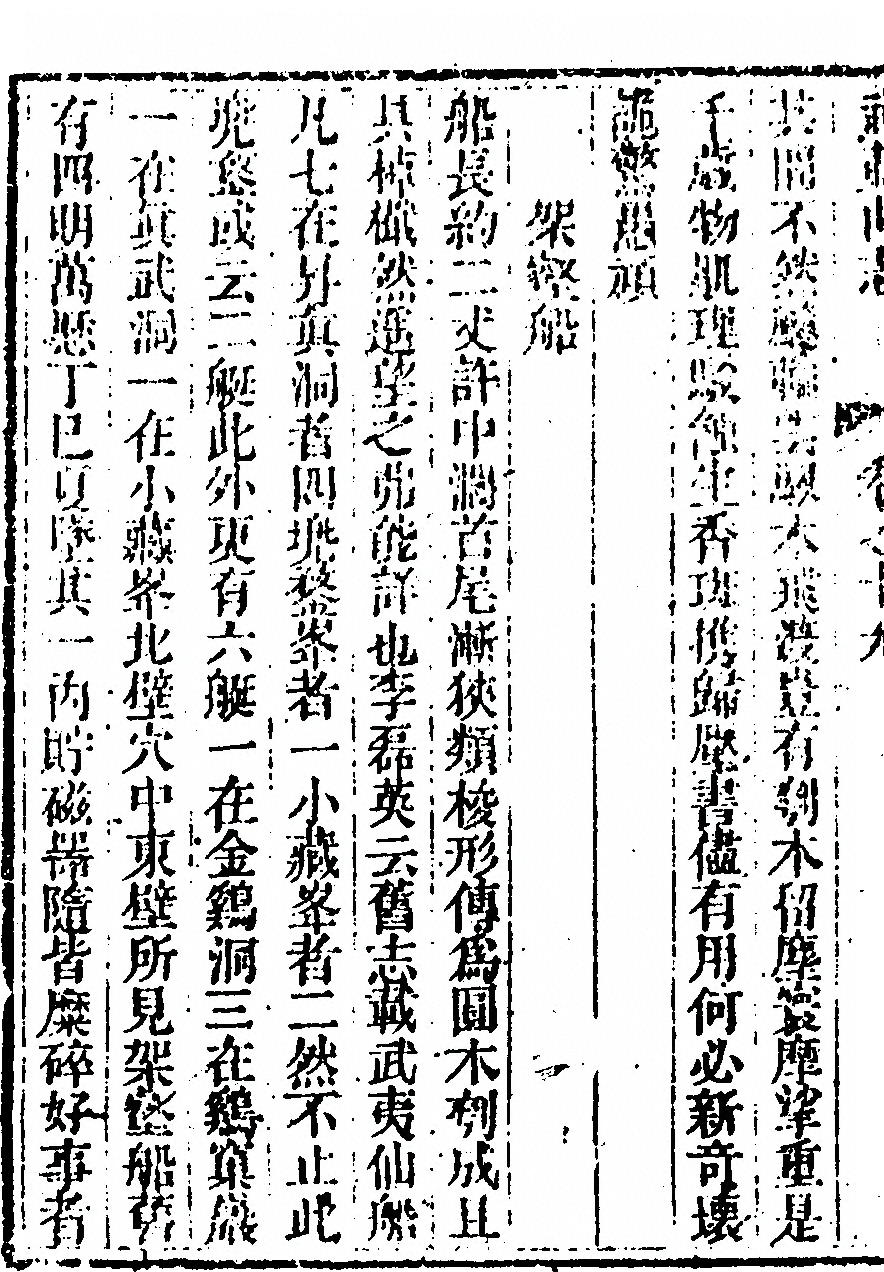 共聞不然驂鸞安馭木槎濺豈有刳木留塵寰摩挲重是
千歲物肌理駁蝕生香斑携歸壓書儘有用何必新奇壞
詭驚愚頑
架壑船
船長約二丈許中濶首尾漸狹類梭形傳爲圓木刳成且
具棹檝然遥望之弗能詳也李磊英云舊志載武夷仙船
凡七在昇真洞者四兜鍪峯者一小藏峯者二然不止此
兜鍪或云二艇此外更有六艇一在金鷄洞三在鷄窠巖
一在真武洞一在小藏峯北壁穴中東壁所見架壑船舊
有四明萬懸丁巳夏墜其一内貯磁器隨皆糜碎好事者